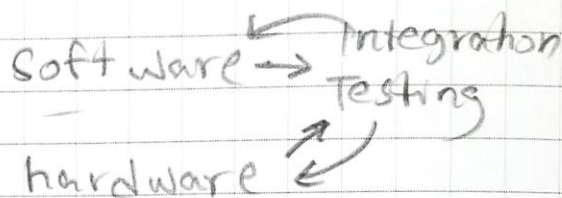 Software → Integration
Testing
hardware